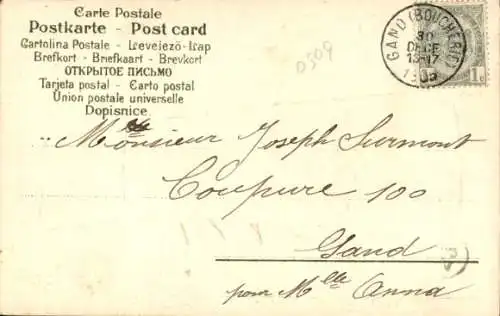 Carte Postale
Postkarte - Post card
Cartolina Postale - Levelező-Lap
Brefkort - Briefkaart - Brevkort
ОТКРЫТОЕ ПИСЬМО
Tarjeta postal - Carto postal
Union postale universelle
Dopisnice
0509
GAND (BOUCHERIE)
30
DECE
15-17
1905
1c
Monsieur Joseph Surmont
Coupure 100
Gand
pour Mlle Anna